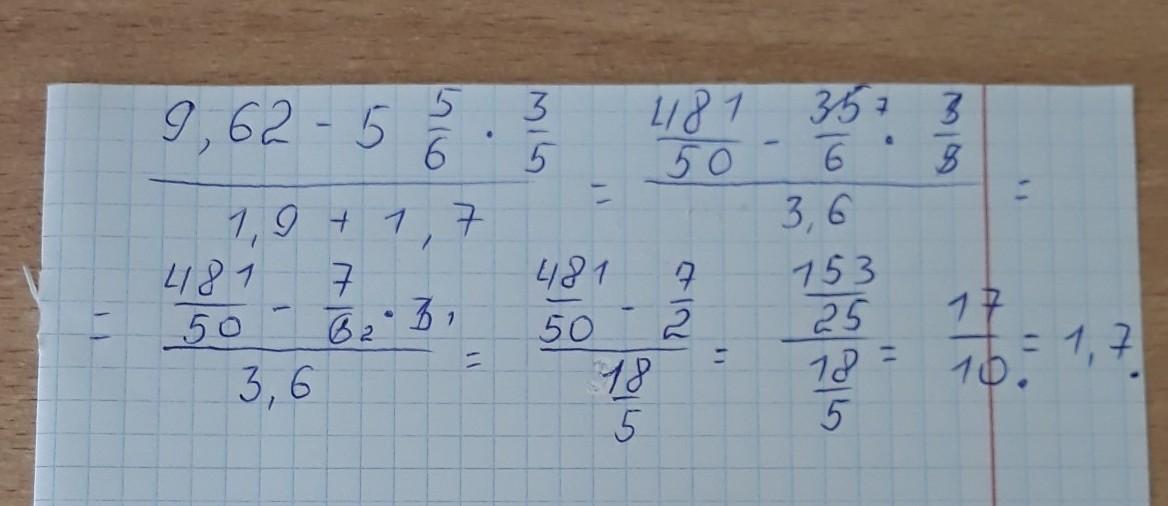 (9,62 - 5 5/6 · 3/5) / (1,9 + 1,7) = (481/50 - 35⁷/6 · 3/5) / 3,6 =
= (481/50 - 7/6₂ · 3₁) / 3,6 = (481/50 - 7/2) / (18/5) = (153/25) / (18/5) = 17/10. = 1,7.